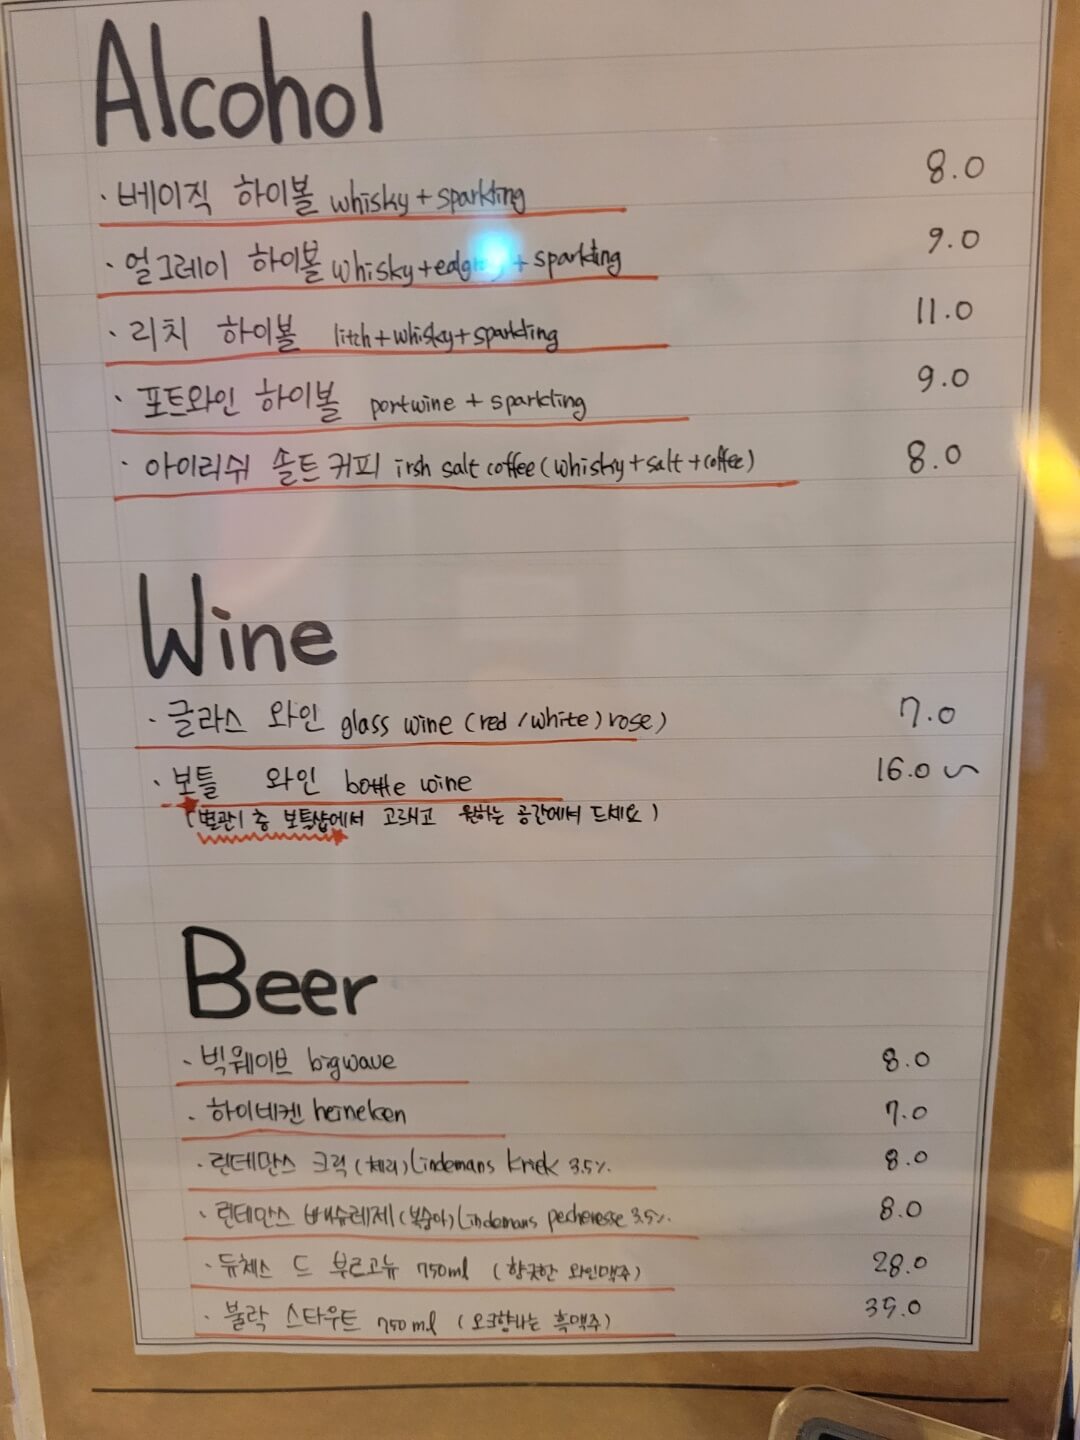 Alcohol
· 베이직 하이볼 whisky + sparkling 8.0
· 얼그레이 하이볼 whisky + + sparkling 9.0
· 리치 하이볼 litch + whisky + sparkling 11.0
· 포트와인 하이볼 portwine + sparkling 9.0
· 아이리쉬 솔트 커피 irsh salt coffee (whisky + salt + coffee) 8.0
Wine
· 글라스 와인 glass wine (red / white) rose) 7.0
· 보틀 와인 bottle wine 16.0 ~
(별관 1층 보틀샵에서 고르시고 원하는 공간에서 드세요)
Beer
· 빅웨이브 bigwave 8.0
· 하이네켄 heineken 7.0
· 린데만스 크릭 (체리) Lindemans kriek 3.5% 8.0
· 린데만스 (복숭아) Lindemans pecheresse 3.5% 8.0
· 듀체스 드 부르고뉴 750ml (향긋한 와인맥주) 28.0
· 불락 스타우트 750ml (오크향나는 흑맥주)